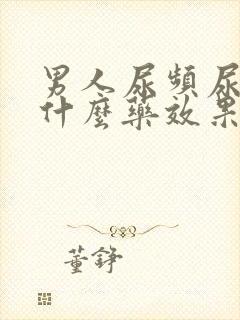 男人尿頻尿
什麼藥效果
董錚